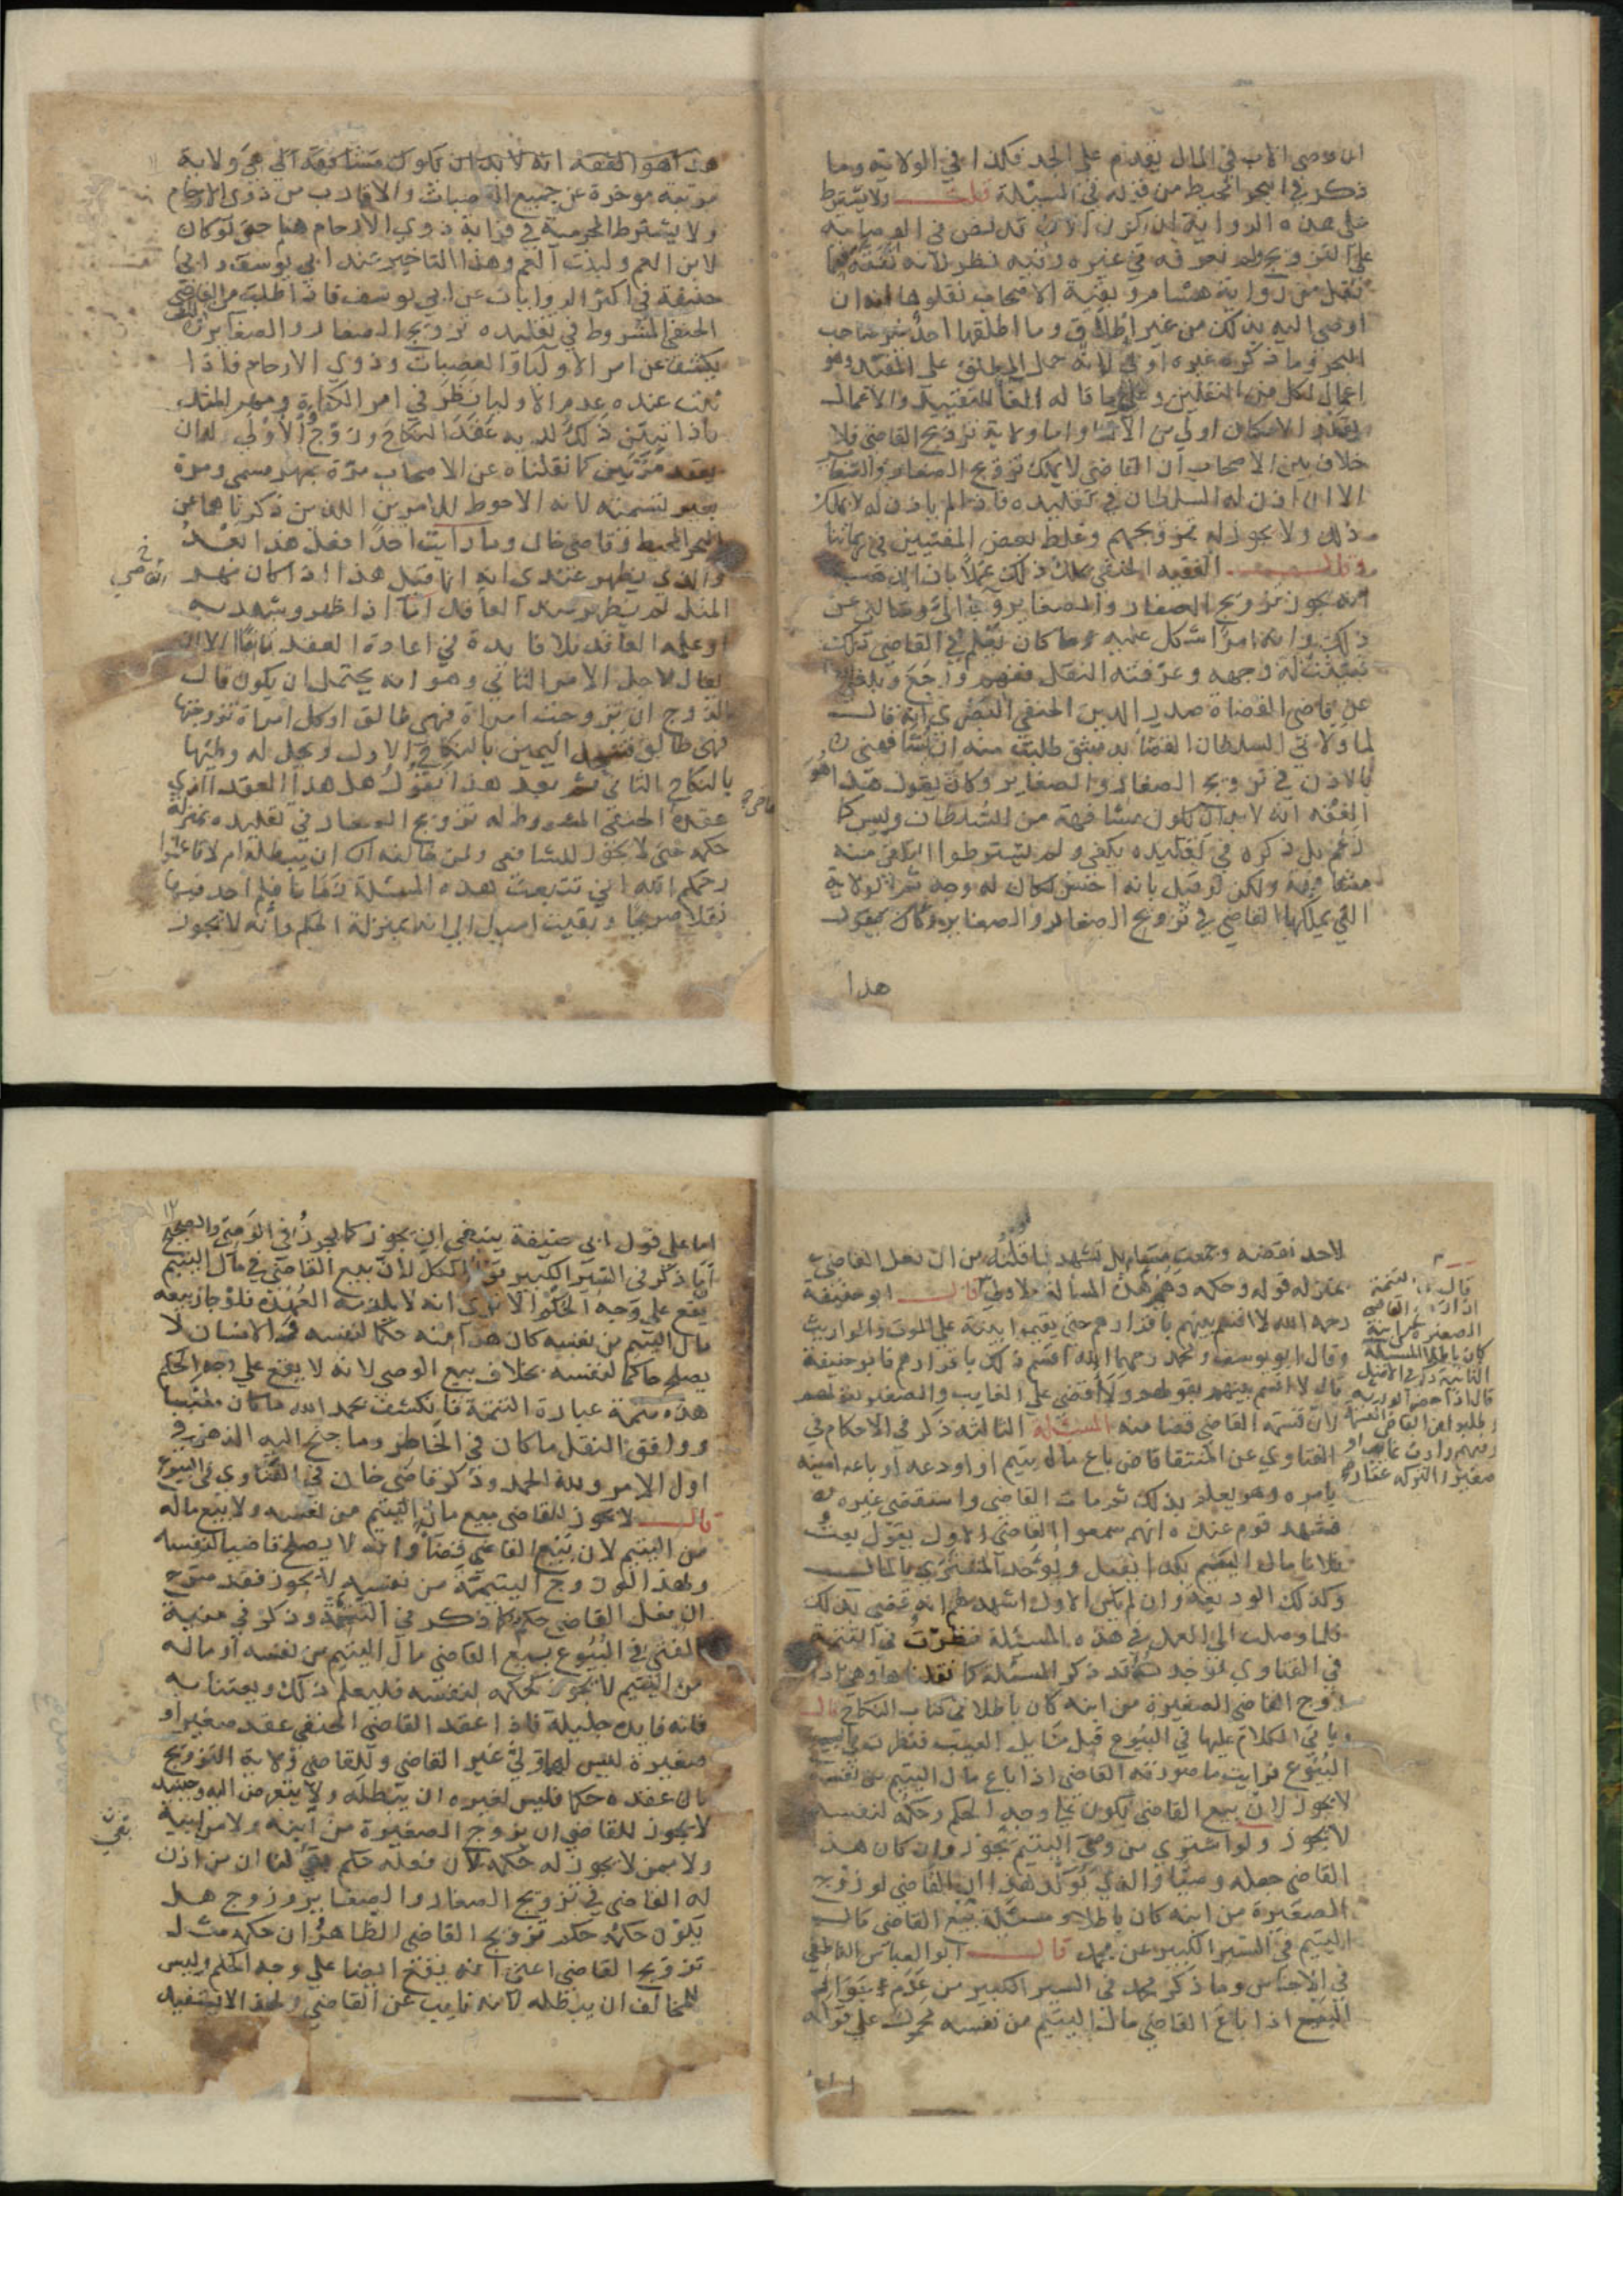 ان وصي الاب في المال يقدم على الجد فكذا في الولاية وما
ذكر في البحر المحيط من قبله في المسئلة قلت ولا يشترط
على هذه الرواية ان يكون الاب قد نص في الوصاية
على التزويج ولم نعرفه في غيره وفيه نظر لانه
نقل من رواية هشام وبقية الاصحاب نقلوها انه ان
اوصى اليه بذلك من غير اطلاق وما اطلقها احد غير صاحب
البحر وما ذكره غيره اولى لانه حمل المطلق على المقيد وهو
اعمال لكل من النقلين وعلى ما قاله الغاء للتقييد والاعمال
بقدر الامكان اولى من الالغاء واما ولاية تزويج القاضي فلا
خلاف بين الاصحاب ان القاضي لا يملك تزويج الصغار والصغاير
الا ان اذن له السلطان في تقليده فاذا لم ياذن له لا يملك
ذلك ولا يجوز له تزويجهم وغلط بعض المفتيين في زماننا
وقال الفقيه الحنفي يملك ذلك عملا بان
انه يجوز تزويج الصغار والصغاير
ذلك وانه امر اشكل عليه وما كان يعلم في القاضي تلك
فبينت له وجهه وعرفته النقل ففهم ورجع وبلغني
عن قاضي القضاة صدر الدين الحنفي البصري انه قال
لما ولاني السلطان القضاء بدمشق طلبت منه ان يشافهني
بالاذن في تزويج الصغار والصغاير وكان يقول هذا هو
الفقه انه لا بد ان يكون مشافهة من السلطان وليس كما
زعم بل ذكره في تقليده يكفي ولم يشترطوا ان يكون منه
مشافهة ولكن لو قيل بانه احسن لكان له وجه ثم الولاية
التي يملكها القاضي في تزويج الصغار والصغاير وكان يقول
هذا
هذا هو الفقه انه لا بد ان يكون مشافهة الي هي ولاية
موخرة عن جميع العصبات والاقارب من ذوي الارحام
ولا يشترط المحرمية في قرابة ذوي الارحام هنا حتى لو كان
لابن العم ولبنت العم وهذا التاخير عند ابي يوسف وابي
حنيفة في اكثر الروايات عن ابي يوسف فاذا طلب من القاضي
الحنفي المشروط في تقليده تزويج الصغار والصغاير ان
يكشف عن امر الاولياء العصبات وذوي الارحام فاذا
ثبت عنده عدم الاوليا نظر في امر الكفاءة ومهر المثل
فاذا تبين ذلك لديه عقد النكاح وزوج والاولى له ان
يعقد مرتين كما نقلناه عن الاصحاب مرة بمهر مسمى ومرة
بغير تسمية لانه الاحوط للامرين اللذين ذكرناهما عن
البحر المحيط وقاضي خان وما رايت احدا فعل هذا بعد
والذي يظهر عندي انه انما قيل هذا اذا كان مهر القاضي
المثل لم يظهر عند العاقد اما اذا ظهر وشهد به
او علمه العاقد فلا فايدة في اعادة العقد ثانيا الا ان
يقال لاجل الامر الثاني وهو انه يحتمل ان يكون قال
الزوج ان تزوجت امراة فهي طالق او كل امراة تزوجتها
فهي طالق فتنحل اليمين بالنكاح الاول ويحل له وطيها
بالنكاح الثاني ثم بعد هذا نقول هل هذا العقد الذي
عقده الحنفي المشروط له تزويج الصغار في تقليده بمنزلة
حكمه حتى لا يجوز للشافعي ولمن خالفه ان يبطله ام لا فاعلموا
رحمكم الله انني تتبعت هذه المسئلة زمانا فلم اجد فيها
نقلا صريحا وبقيت اميل الى انه بمنزلة الحكم وانه لا يجوز
لاحد نقضه وجمعت مسايل تشهد لما قلته من ان فعل القاضي
بمنزلة قوله وحكمه وهي هذه المسالة الاولى قال ابو حنيفة
رحمه الله لا اقسم بينهم باقرارهم حتى يقيموا بينة على الموت والمواريث
وقال ابو يوسف ومحمد رحمهما الله اقسم ذلك باقرارهم فابو حنيفة
قال لا اقسم بينهم بقولهم ولا اقضي على الغايب والصغير بقولهم
لان قسمة القاضي قضا منه المسئلة الثالثة ذكر في الاحكام في
الفتاوي عن المنتقا قاض باع مال يتيم او اودعه او باعه امينه
بامره وهو يعلم بذلك ثم مات القاضي واستقضي غيره
فشهد قوم عنده انهم سمعوا القاضي الاول يقول بعت
فلانا مال اليتيم بكذا يقبل ويؤخذ المشتري بالمال
وكذلك الوديعة وان لم يكن الاول اشهدهم انه قضى بذلك
فلما وصلت الى العمل في هذه المسئلة نظرت في التتمة
في الفتاوي فوجدته قد ذكر المسئلة كما نقلناها وهي اذا
زوج القاضي الصغيرة من ابنه كان باطلا في كتاب النكاح قال
وياتي الكلام عليها في البيوع قبل مسايل العيب فنظرت في
البيوع فرايت ما صورته القاضي اذا باع مال اليتيم من نفسه
لا يجوز لان بيع القاضي يكون على وجه الحكم وحكمه لنفسه
لا يجوز ولو اشتري من وصي اليتيم يجوز وان كان هذا
القاضي جعله وصيا والذي يؤكد هذا ان القاضي لو زوج
الصغيرة من ابنه كان باطلا ومسئلة بيع القاضي مال
اليتيم في السير الكبير عن محمد قال ابو العباس الناطفي
في الاجناس وما ذكر محمد في السير الكبير من عدم جواز
البيع اذا باع القاضي مال اليتيم من نفسه محمول على قوله
قال في التتمة
اذا زوج القاضي
الصغيرة من ابنه
كان باطلا المسئلة
الثانية ذكر في الاصل
قال اذا حضر الورثة
وطلبوا من القاضي القسمة
وفيهم وارث غايب او
صغير والتركة عقار
اما على قول ابي حنيفة ينبغي ان يجوز كما يجوز في الوصي والصحيح
ما ذكر في السير الكبير قول الكل لان بيع القاضي في مال اليتيم
يقع على وجه الحكم الا ترى انه لا يلزمه العهدة فلو جاز بيعه
مال اليتيم من نفسه كان هذا منه حكما لنفسه والانسان لا
يصلح حاكما لنفسه بخلاف بيع الوصي لانه لا يقع على وجه الحكم
هذه تتمة عبارة التتمة فانكشف بحمد الله ما كان ملتبسا
ووافق النقل ما كان في الخاطر وما جنح اليه الذهن في
اول الامر ولله الحمد وذكر قاضي خان في الفتاوي في البيوع
قال لا يجوز للقاضي بيع مال اليتيم من نفسه ولا بيع ماله
من اليتيم لان بيع القاضي قضاء وانه لا يصلح قاضيا لنفسه
ولهذا لو زوج اليتيمة من نفسه لا يجوز فقد صرح
ان فعل القاضي حكم كما ذكر في التتمة وذكر في منية
المفتي في البيوع بيع القاضي مال اليتيم من نفسه او ماله
من اليتيم لا يجوز لحكمه لنفسه فليعلم ذلك ويعتنا به
فانه فايدة جليلة فاذا عقد القاضي الحنفي عقد صغير او
صغيرة ليس لها ولي غير القاضي وللقاضي ولاية التزويج
كان عقده حكما فليس لغيره ان يبطله ولا يتعرض اليه وحينيذ
لا يجوز للقاضي ان يزوج الصغيرة من ابنه ولا من ابيه
ولا ممن لا يجوز له حكمه لان فعله حكم بقي لنا ان من اذن
له القاضي في تزويج الصغار والصغاير وزوج هل
يكون حكمه حكم تزويج القاضي الظاهر ان حكمه مثل
تزويج القاضي اعني انه يقع ايضا على وجه الحكم وليس
للمخالف ان يبطله لانه نايب عن القاضي